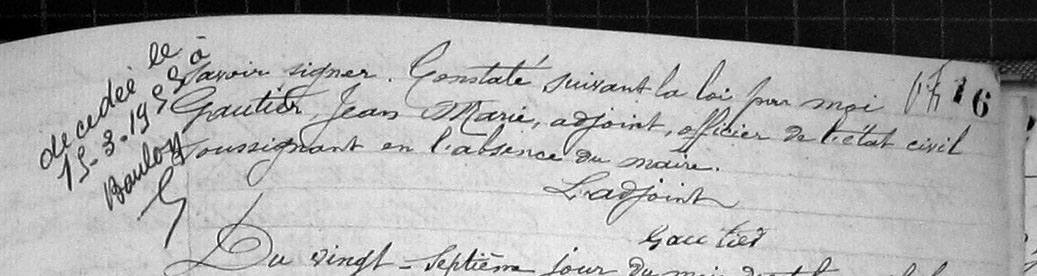 decedée le
15-3-1953 à
Baulon
savoir signer. Constaté suivant la loi par moi
16
Gautier, Jean Marie, adjoint, officier de l'état civil
soussignant en l'absence du maire.
L'adjoint
Gautier
Du vingt-septième jour du mois